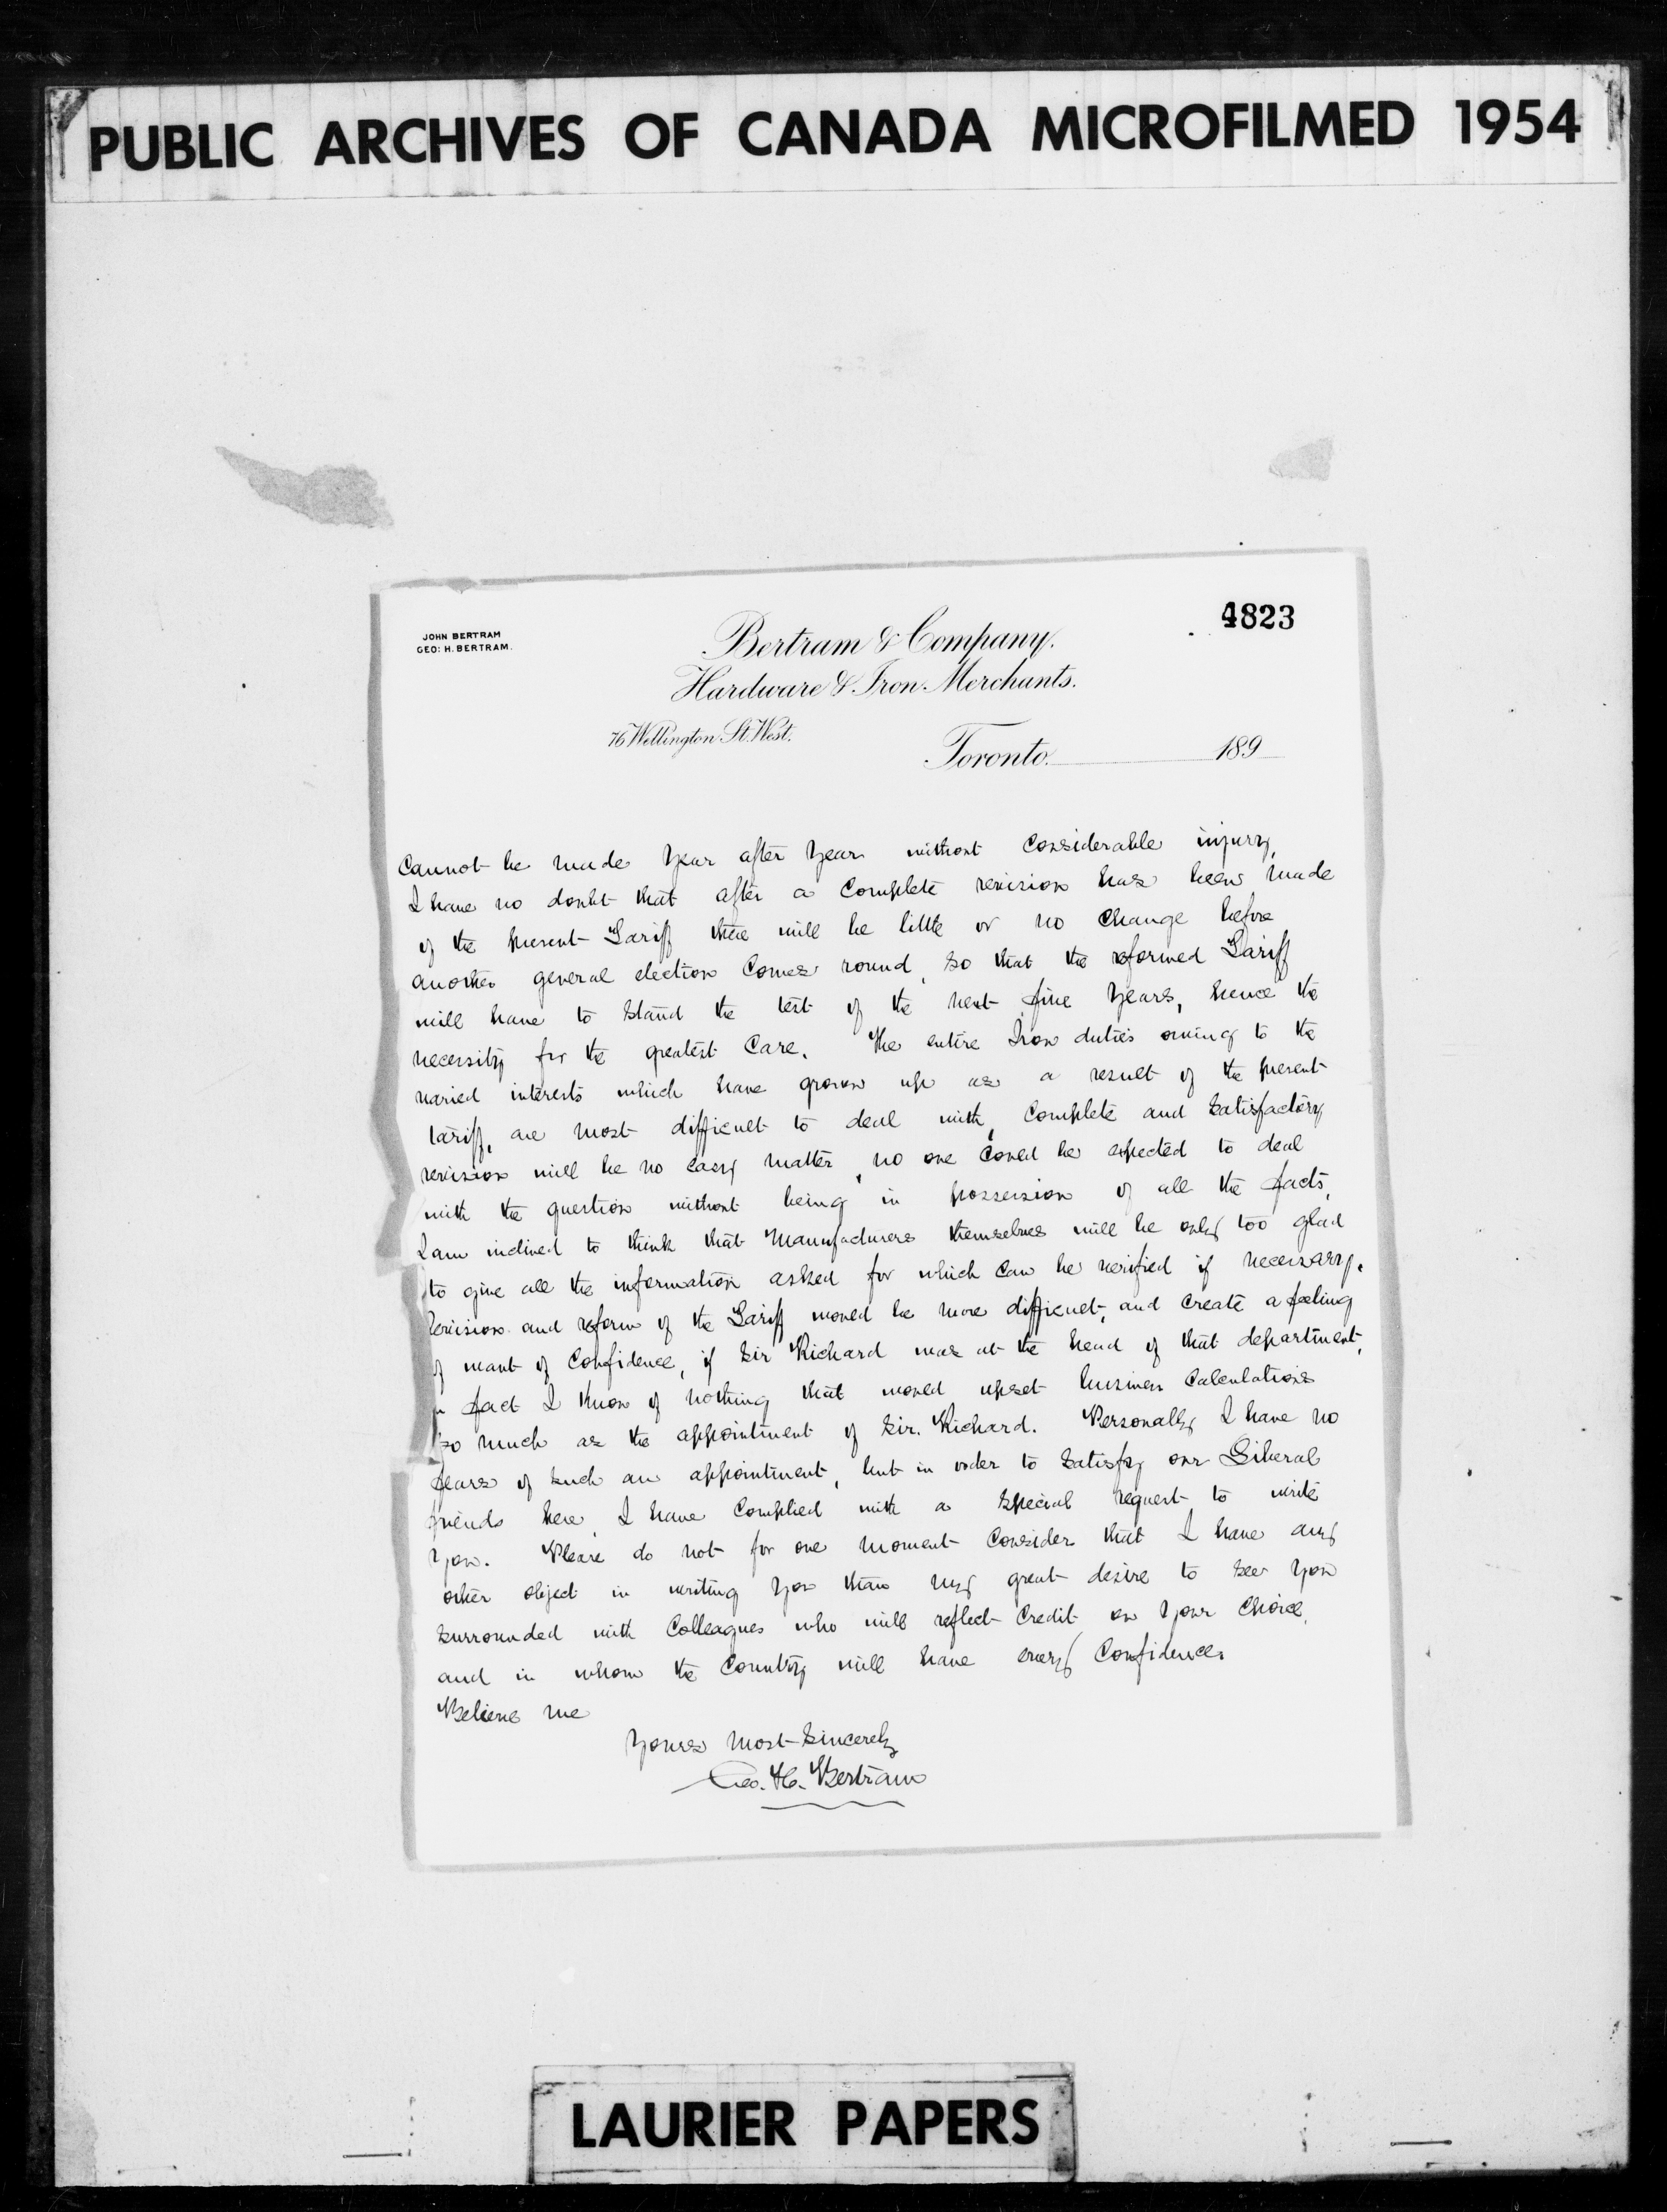 PUBLIC ARCHIVES OF CANADA MICROFILMED 1954
4823
JOHN BERTRAM
GEO: H. BERTRAM.
Bertram & Company.
Hardware & Iron Merchants.
76 Wellington St. West.
Toronto. 189
Cannot be made year after year without considerable injury,
I have no doubt that after a complete revision has been made
of the present Tariff there will be little or no change before
another general election comes round, so that the reformed Tariff
will have to stand the test of the next five years, hence the
necessity for the greatest care. The entire Iron duties owing to the
varied interests which have grown up as a result of the present
tariff, are most difficult to deal with, complete and satisfactory
revision will be no easy matter, no one could be expected to deal
with the question without being in possession of all the facts,
I am inclined to think that Manufacturers themselves will be only too glad
to give all the information asked for which can be verified if necessary.
Revision and reform of the Tariff would be more difficult, and create a feeling
of want of confidence, if Sir Richard was at the head of that department,
in fact I know of nothing that would upset business calculations
so much as the appointment of Sir. Richard. Personally I have no
fears of such an appointment, but in order to satisfy our Liberal
friends here, I have complied with a special request to write
you. Please do not for one moment consider that I have any
other object in writing you than my great desire to see you
surrounded with Colleagues who will reflect credit on your choice,
and in whom the Country will have every confidence.
Believe me
Yours most sincerely
Geo. H. Bertram
LAURIER PAPERS